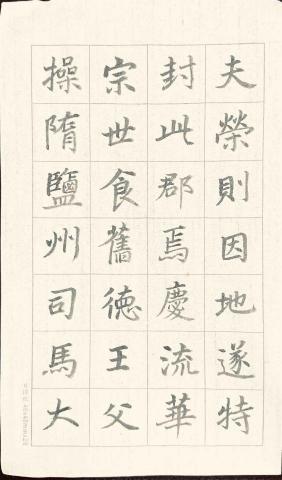 夫榮則因地遂特
封此郡焉慶流華
宗世食舊德王父
操隋鹽州司馬大